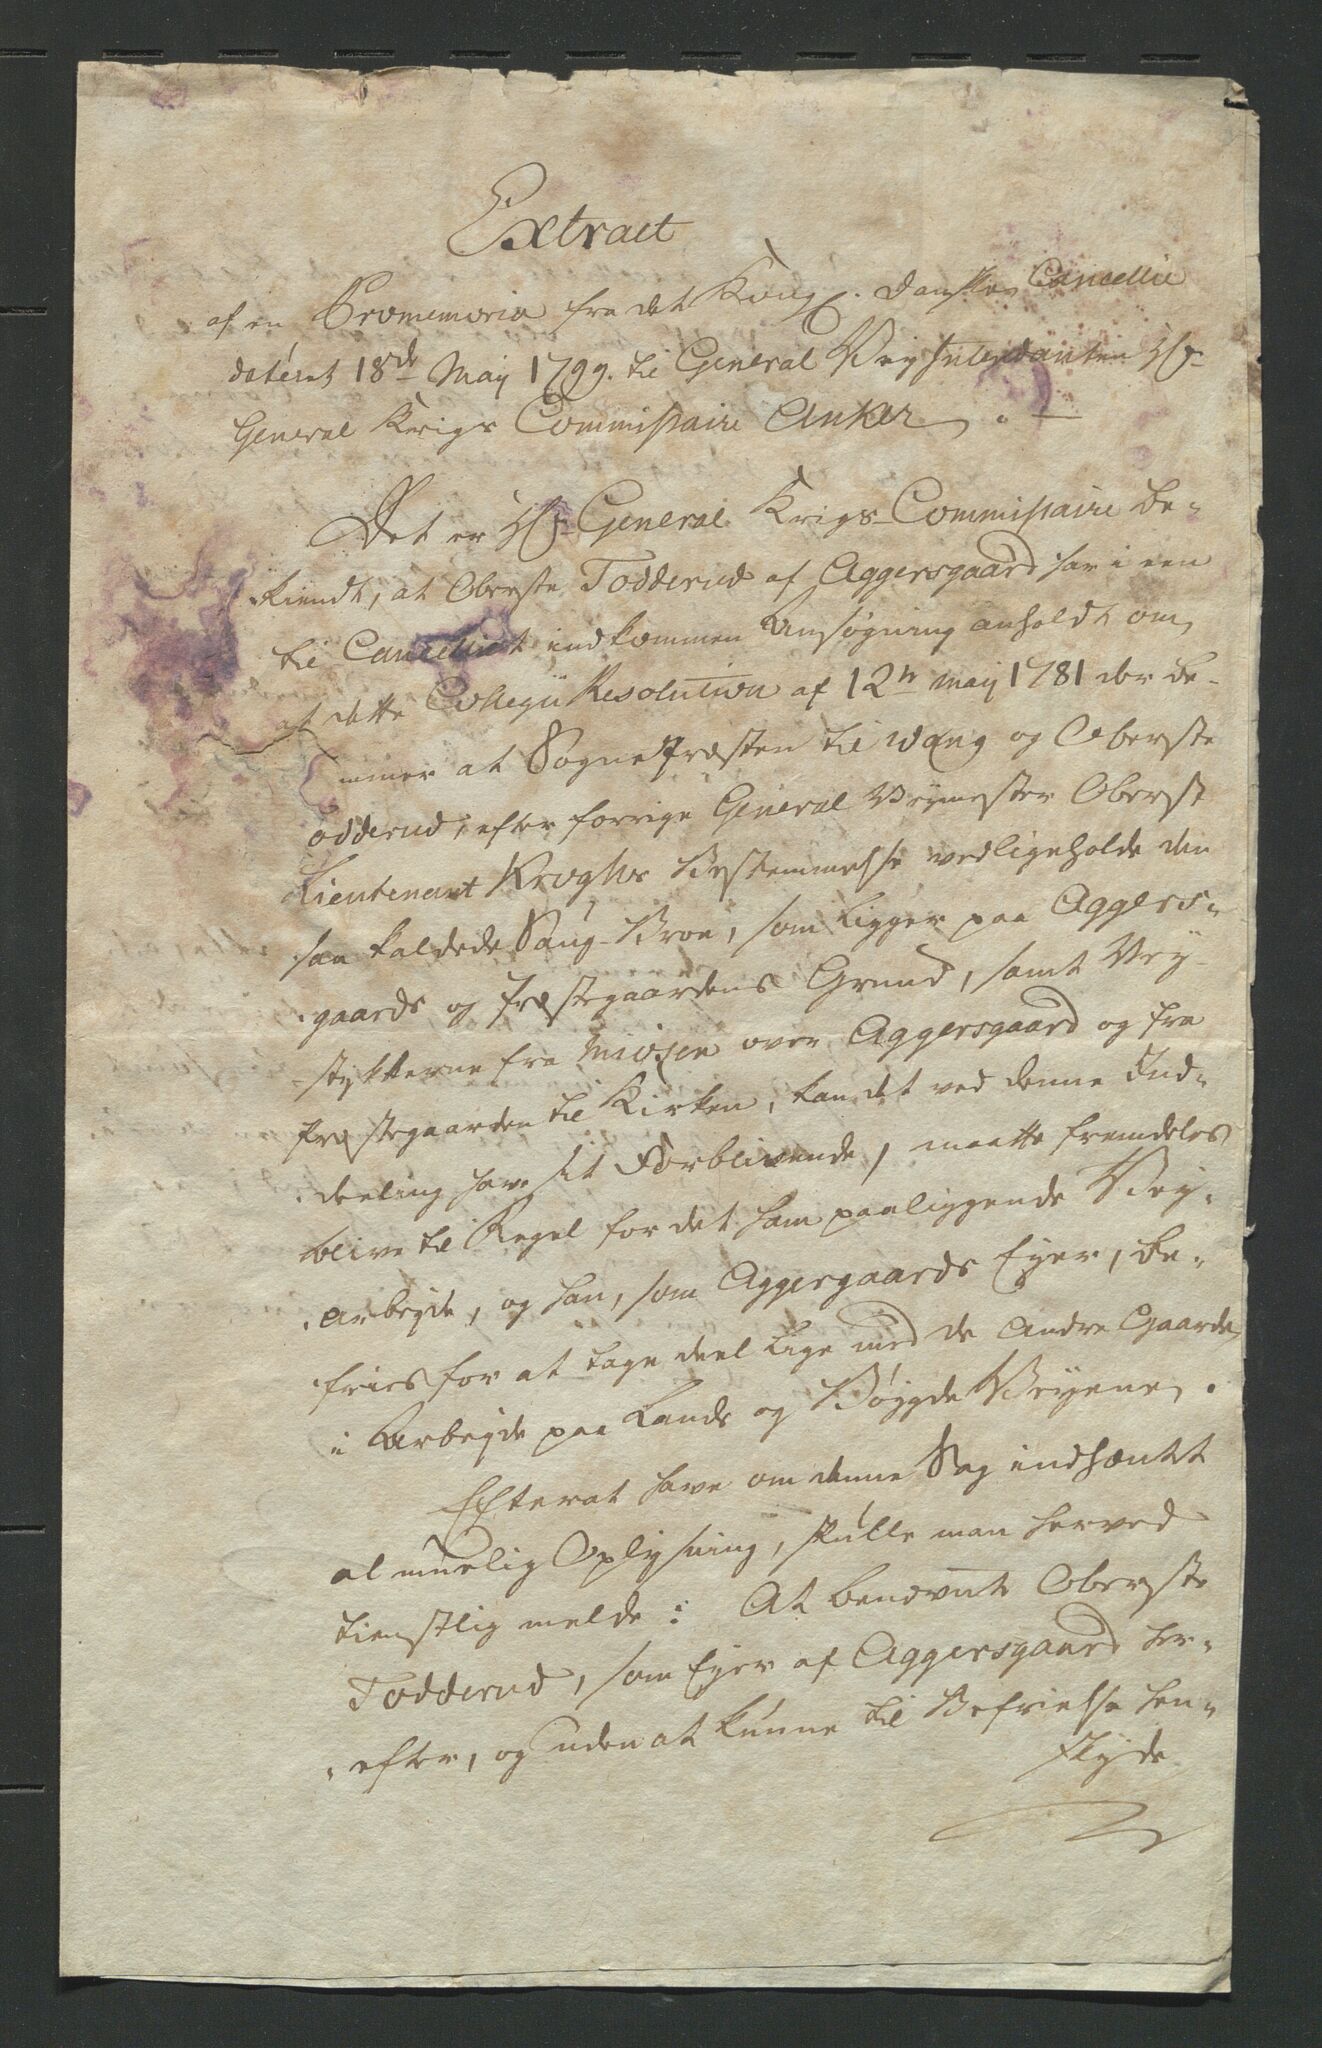 Extract
af en Promemoria fra det Kongl. Danske Cancellie
dateret 18de May 1799. til General Vey Intendanten Hr
General Krigs Commissaire Anker.
Det er Hr General Krigs-Commissaire be-
kiendt, at Oberste Todderud af Aggersgaard har i een
til Cancelliet indkommen Ansøgning anholdt om,
at dette Collegii Resolution af 12te May 1781 der be-
mmer at SognePræsten til Wang og Oberste
odderud, efter forrige General Veymester Oberst
Lieutenant Kroghs Bestemmelse vedligeholde den
saa kaldede Sang-Broe, som ligger paa Aggers-
gaards og Præstegaardens Grund, samt Vey-
stykkerne fra Miösen over Aggersgaard og fra
Præstegaarden til Kirken, kan det ved denne Ind-
deeling have sit Forblivende, maatte fremdeles
blive til Regel for det ham paaliggende Vey-
arbeyde, og han, som Aggergaards Eyer, be-
fries for at tage deel lige med de andre Gaarde
i Arbeyde paa Lands og Bøygde Veyene.
Efterat have om denne Sag indhæntet
al muelig Oplysning, skulle man herved
tienstlig melde: At bendvnte Oberste
Todderud, som Eyer af Aggersgaard her-
efter, og uden at kunne til Befrielse hen-
flyde